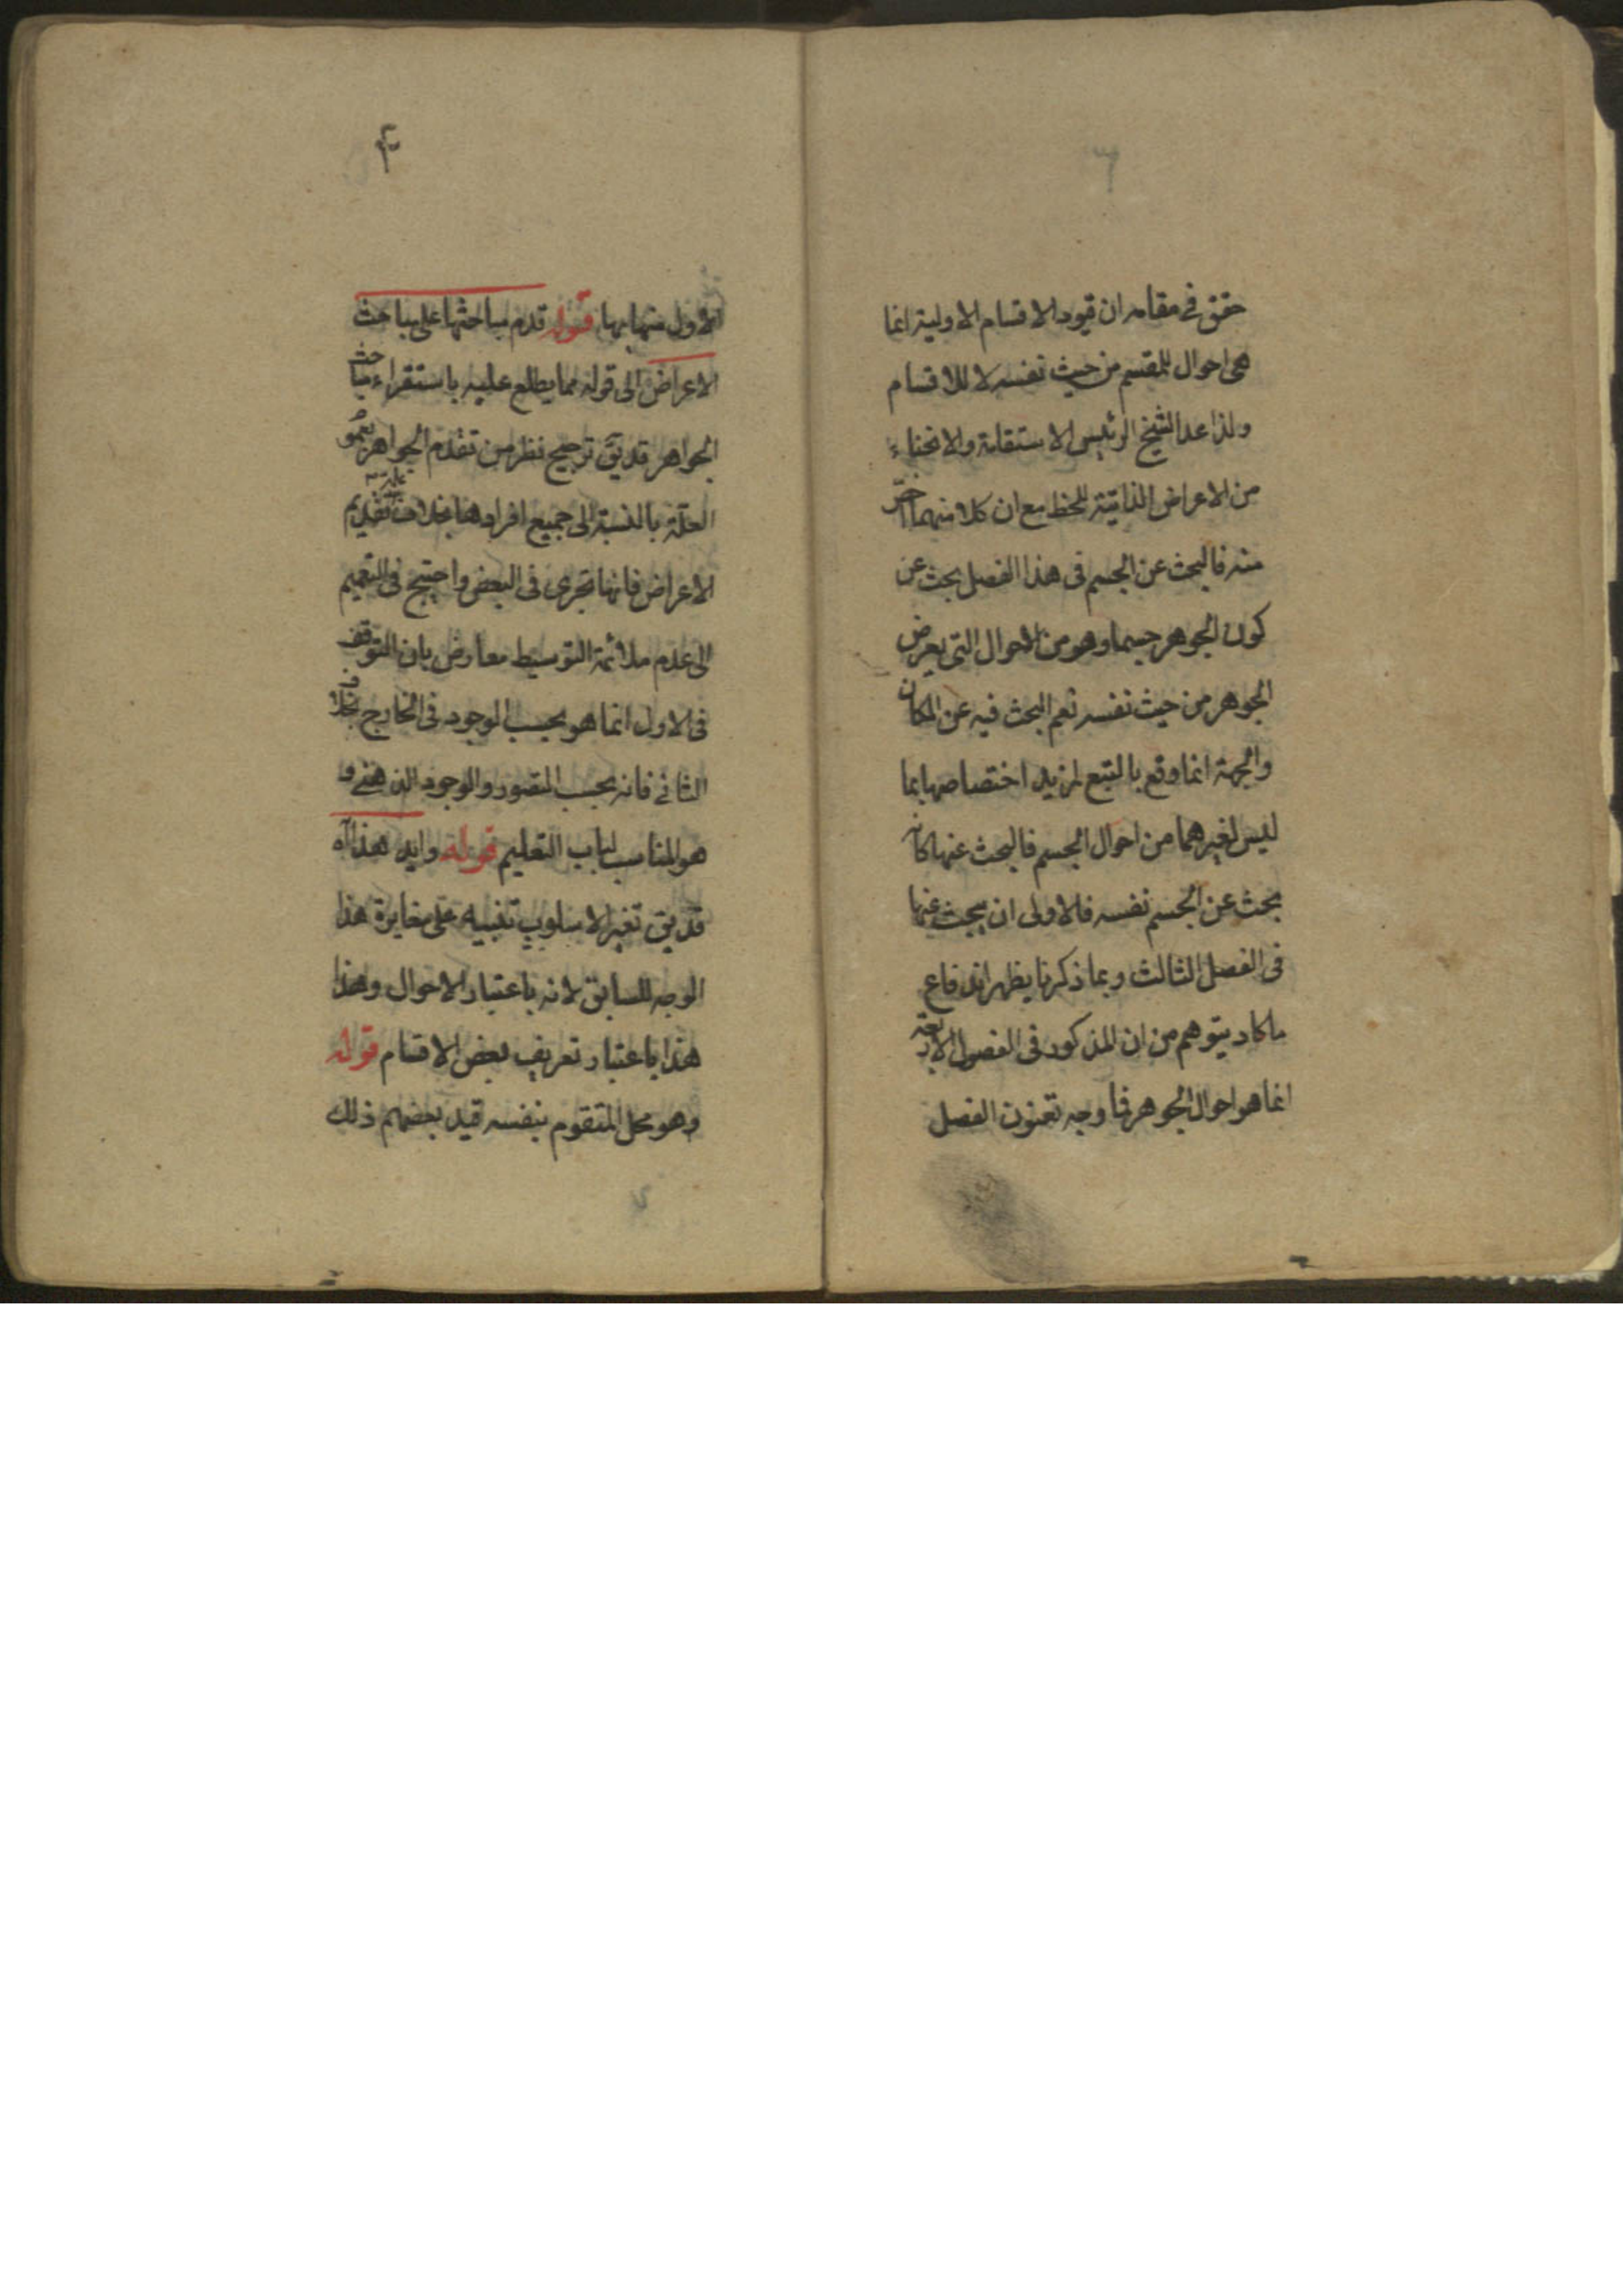 حقق في مقامه ان قيود الاقسام الاولية انما
هى احوال للمقسم من حيث نفسه لا للاقسام
ولذا عد الشيخ الرئيس الاستقامة والانحناء
من الاعراض الذاتية للخط مع ان كلا منهما اخص
منه فالبحث عن الجسم فى هذا الفصل بحث عن
كون الجوهر جسما وهو من الاحوال التى يعرض
الجوهر من حيث نفسه نعم البحث فيه عن المكان
والجهة انما وقع بالتبع لمزيد اختصاصها بما
ليس لغيرهما من احوال الجسم فالبحث عنها كانه
بحث عن الجسم نفسه فالاولى ان يبحث عنها
فى الفصل الثالث وبما ذكرنا يظهر اندفاع
ما كاد يتوهم من ان المذكور فى الفصول الاربعة
انما هو احوال الجوهر فما وجه تعنون الفصل
۴
الاول منها بها قوله قدم مباحثها على مباحث
الاعراض الى قوله مما يطلع عليه باستقراء مباحث
الجواهر قد يق ترجيح نظر من تقدم الجواهر بعموم
العلة بالنسبة الى جميع افرادها بخلاف تقديم
الاعراض فانها تجرى فى البعض واحتيج فى التعميم
الى عدم ملائمة التوسيط معارض بان التوقف
فى الاول انما هو بحسب الوجود فى الخارج بخلاف
الثانى فانه بحسب التصور والوجود الذهنى و
هو المناسب لباب التعليم قوله وايد هذا آه
قد يق تغير الاسلوب تنبيه على مغايرة هذا
الوجه للسابق لانه باعتبار الاحوال وهذا
هذا باعتبار تعريف بعض الاقسام قوله
وهو محل المتقوم بنفسه قيد بعضهم ذلك